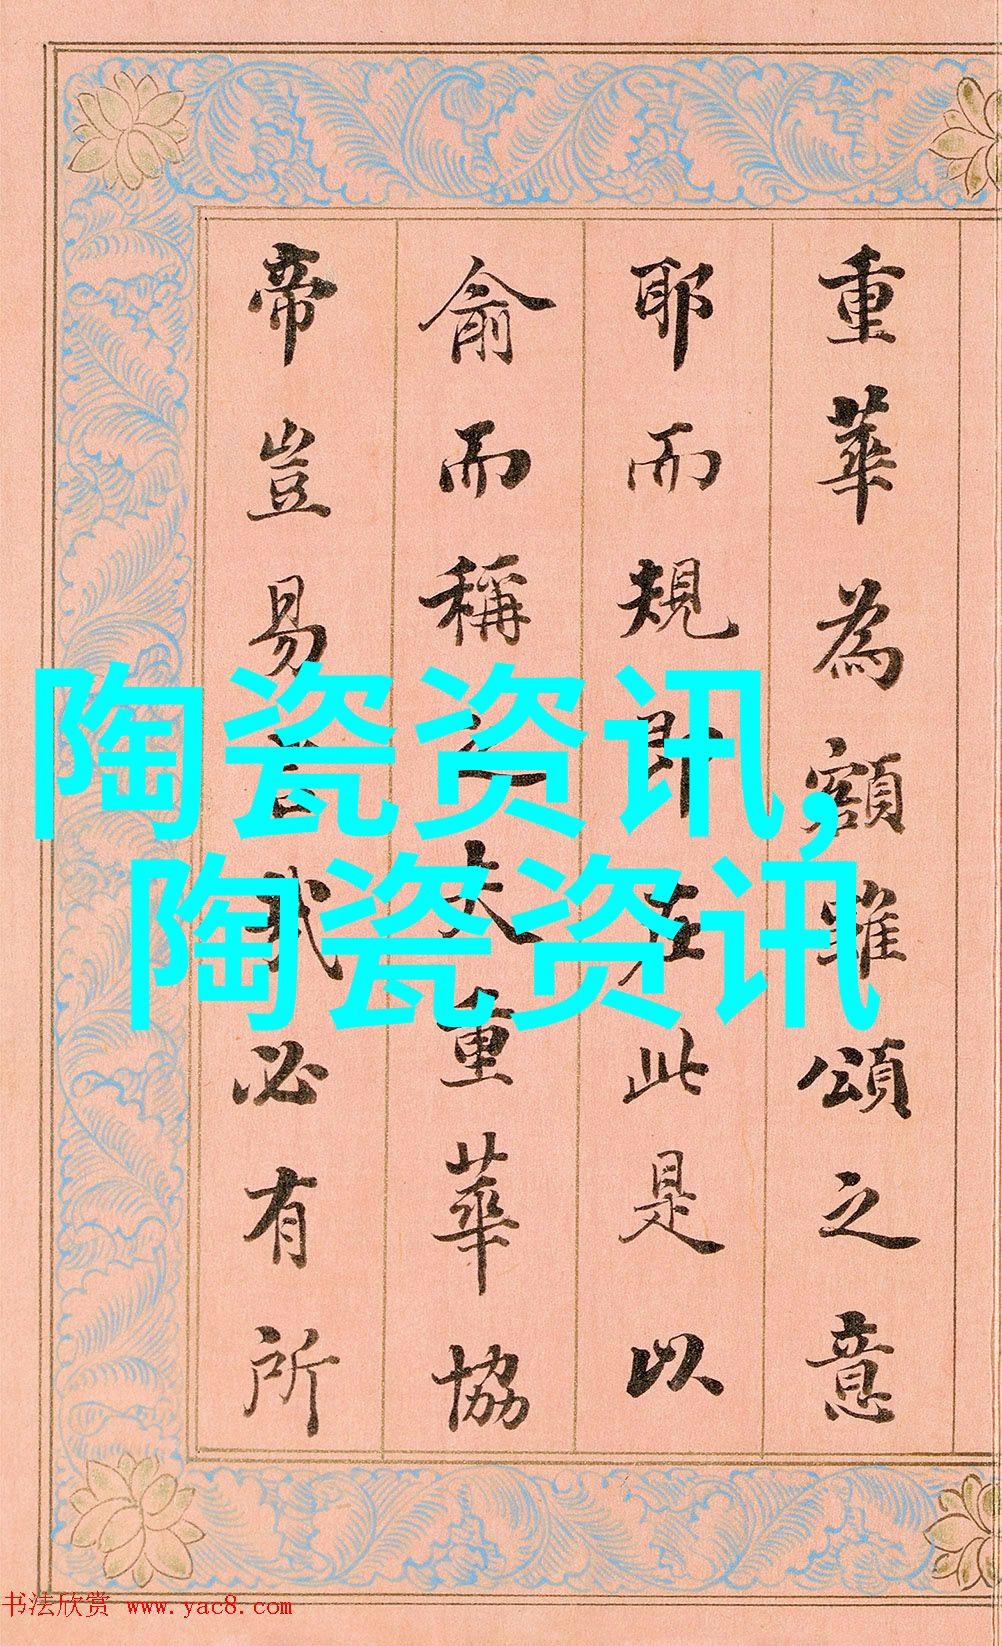 重華為額雖頌之意
耶而規即在此是以
俞而稱之夫重華協
帝豈易言哉必有所
陶瓷资讯,
陶瓷资讯
书法欣赏 www.yac8.com